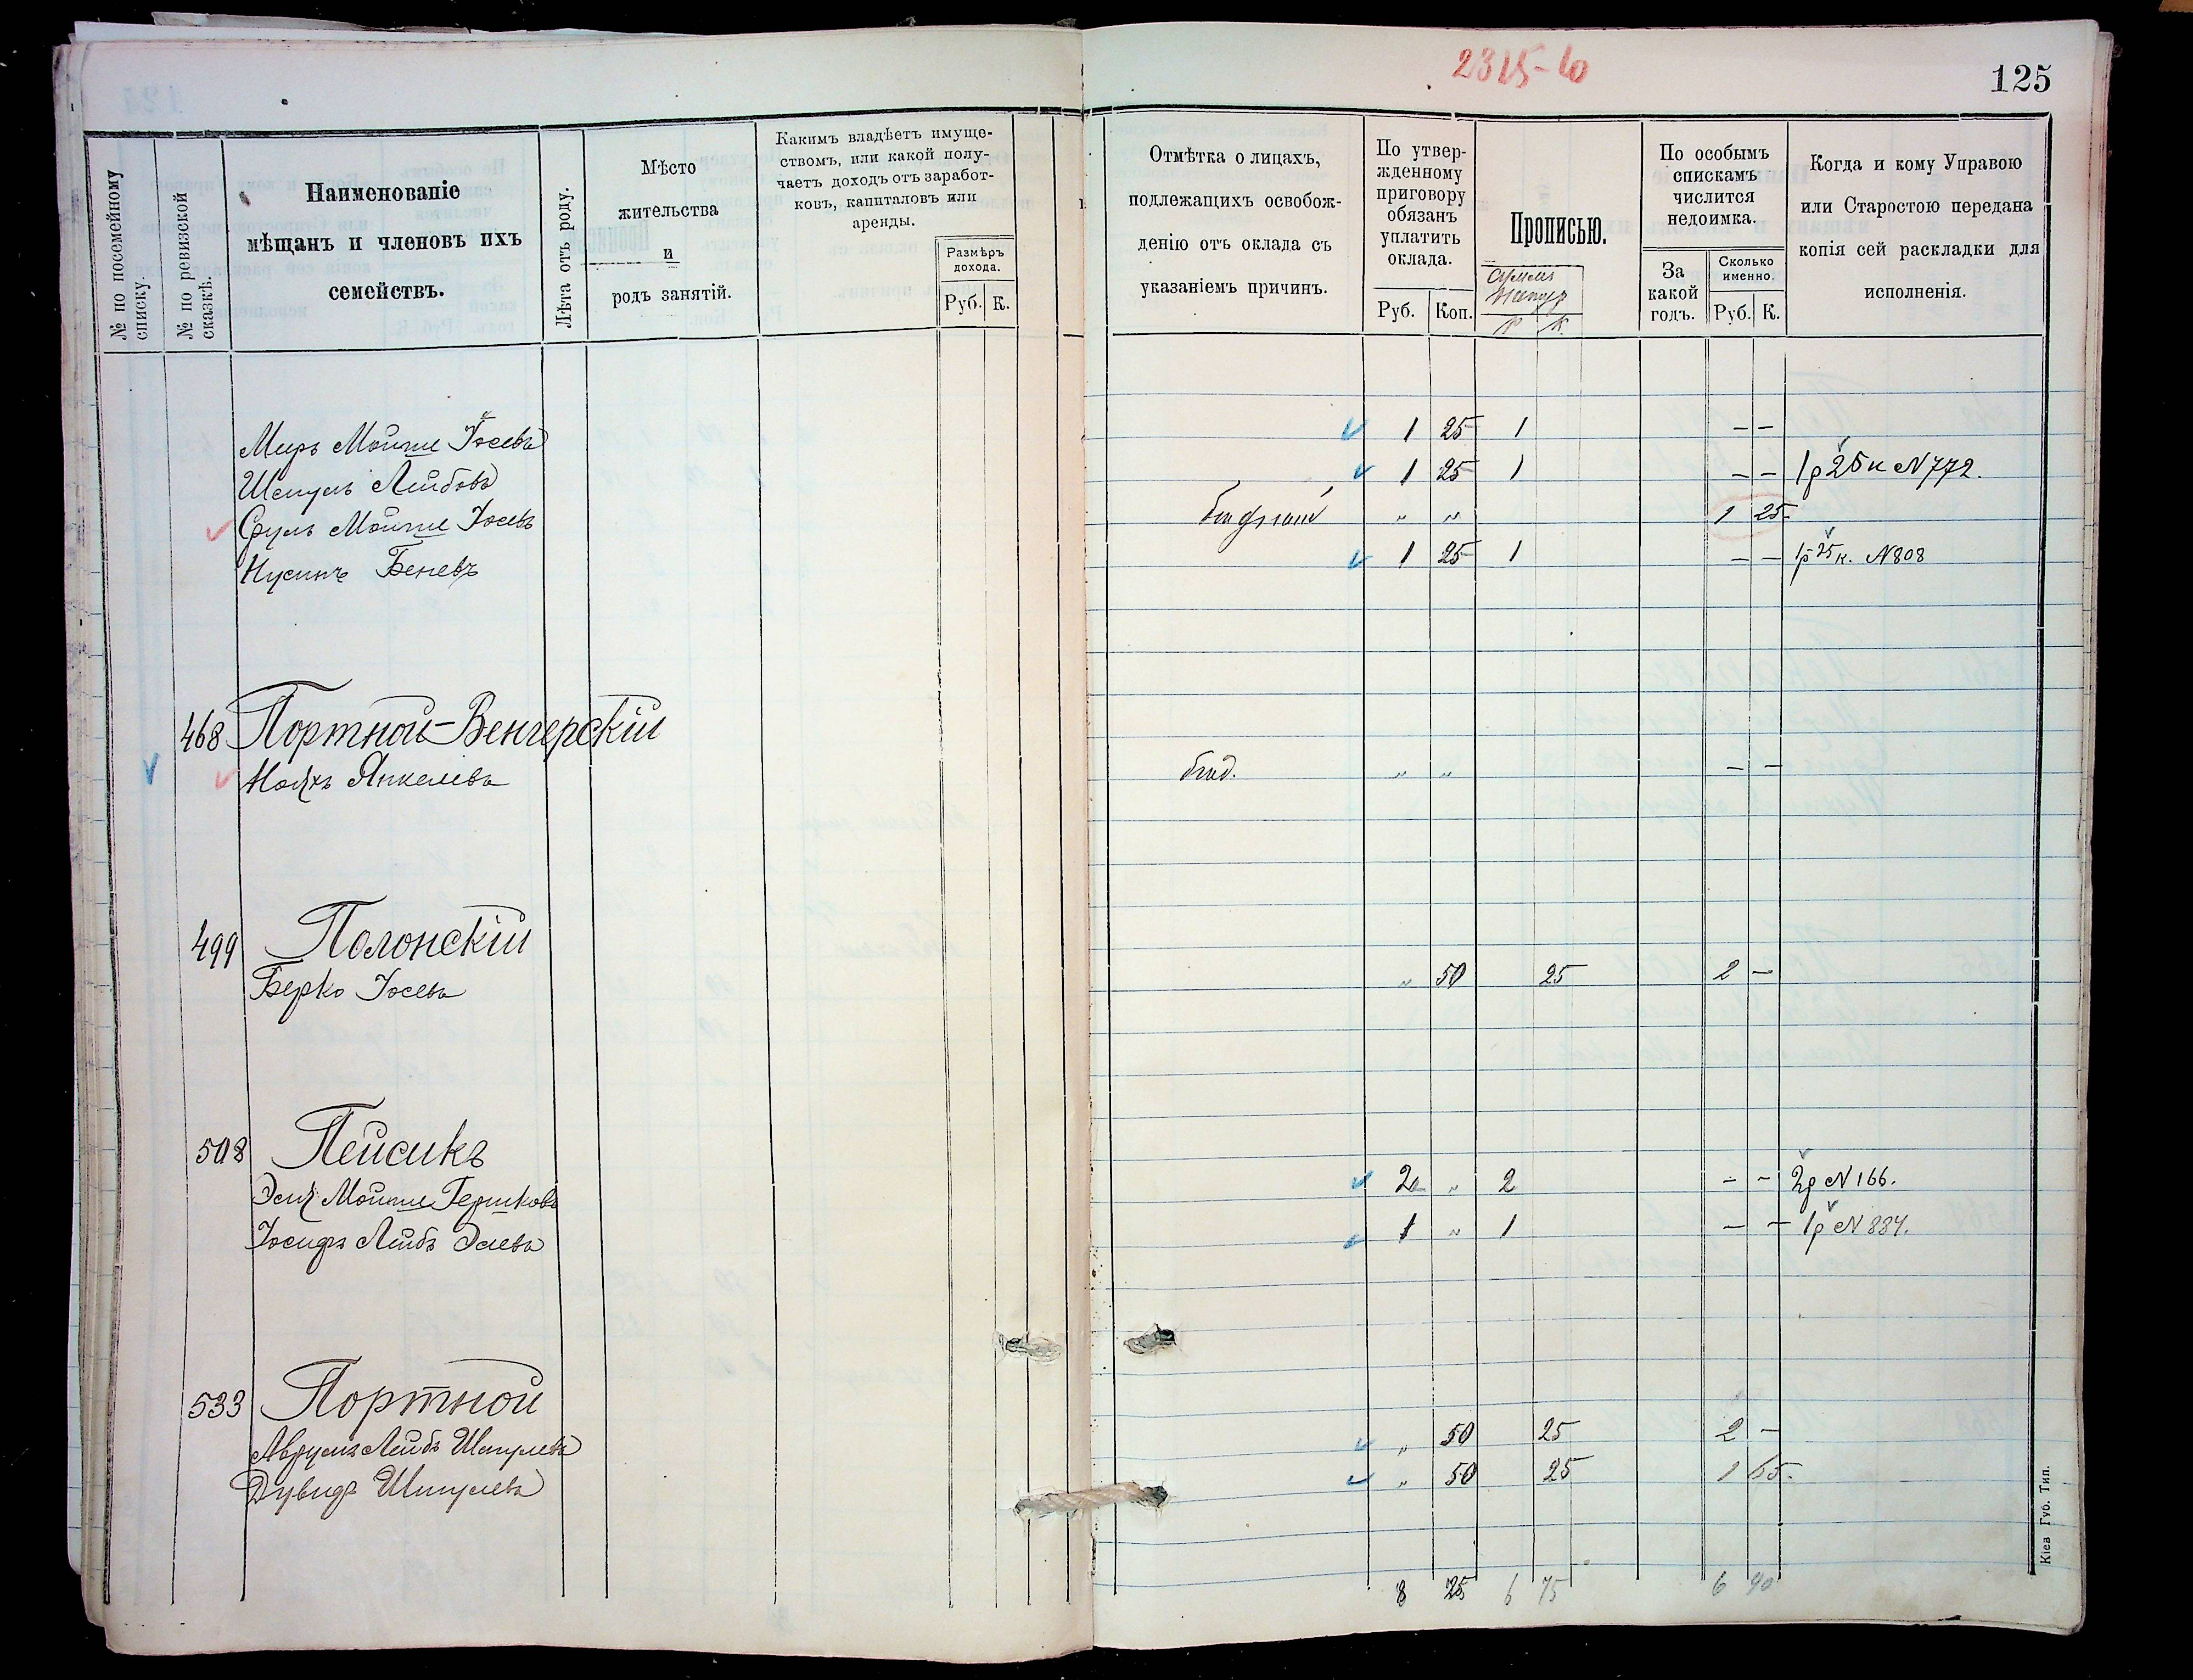 2315-60
125
№ по посемейному списку.
№ по ревизской сказкѣ.
Наименованіе
мѣщанъ и членовъ ихъ
семействъ.
Лѣта отъ роду.
Мѣсто
жительства
и
родъ занятій.
Какимъ владѣетъ имуще-
ствомъ, или какой полу-
чаетъ доходъ отъ заработ-
ковъ, капиталовъ или
аренды.
Размѣръ
дохода.
Руб. К.
Отмѣтка о лицахъ,
подлежащихъ освобож-
денію отъ оклада съ
указаніемъ причинъ.
По утвер-
жденному
приговору
обязанъ
уплатить
оклада.
Руб. Коп.
Прописью.
Р К.
По особымъ
спискамъ
числится
недоимка.
За
какой
годъ.
Сколько
именно.
Руб. К.
Когда и кому Управою
или Старостою передана
копія сей раскладки для
исполненія.
Меръ Мойше Іосевъ 1 25 1 — —
Шмуль Лейбовъ 1 25 1 — — 1р 25к N 772.
Сруль Мойше Іосевъ " " 1 25
Нусинъ Беневъ 1 25 1 — — 1р 25к. N 808
468 Портной-Венгерскій
Янкелевъ " " — —
499 Полонскій
Берко Іосевъ " 50 25 2 —
508 Пейсикъ
Мойше Гершковъ 2 " 2 — — 2р N 166.
Іосифъ Лейбъ Элевъ 1 " 1 — — 1р N 884.
533 Портной
Аврумъ Лейбъ Шмулевъ " 50 25 2 —
Дувидъ Шмулевъ " 50 25 1 65
8 25 6 75 6 90
Кіев Губ. Тип.